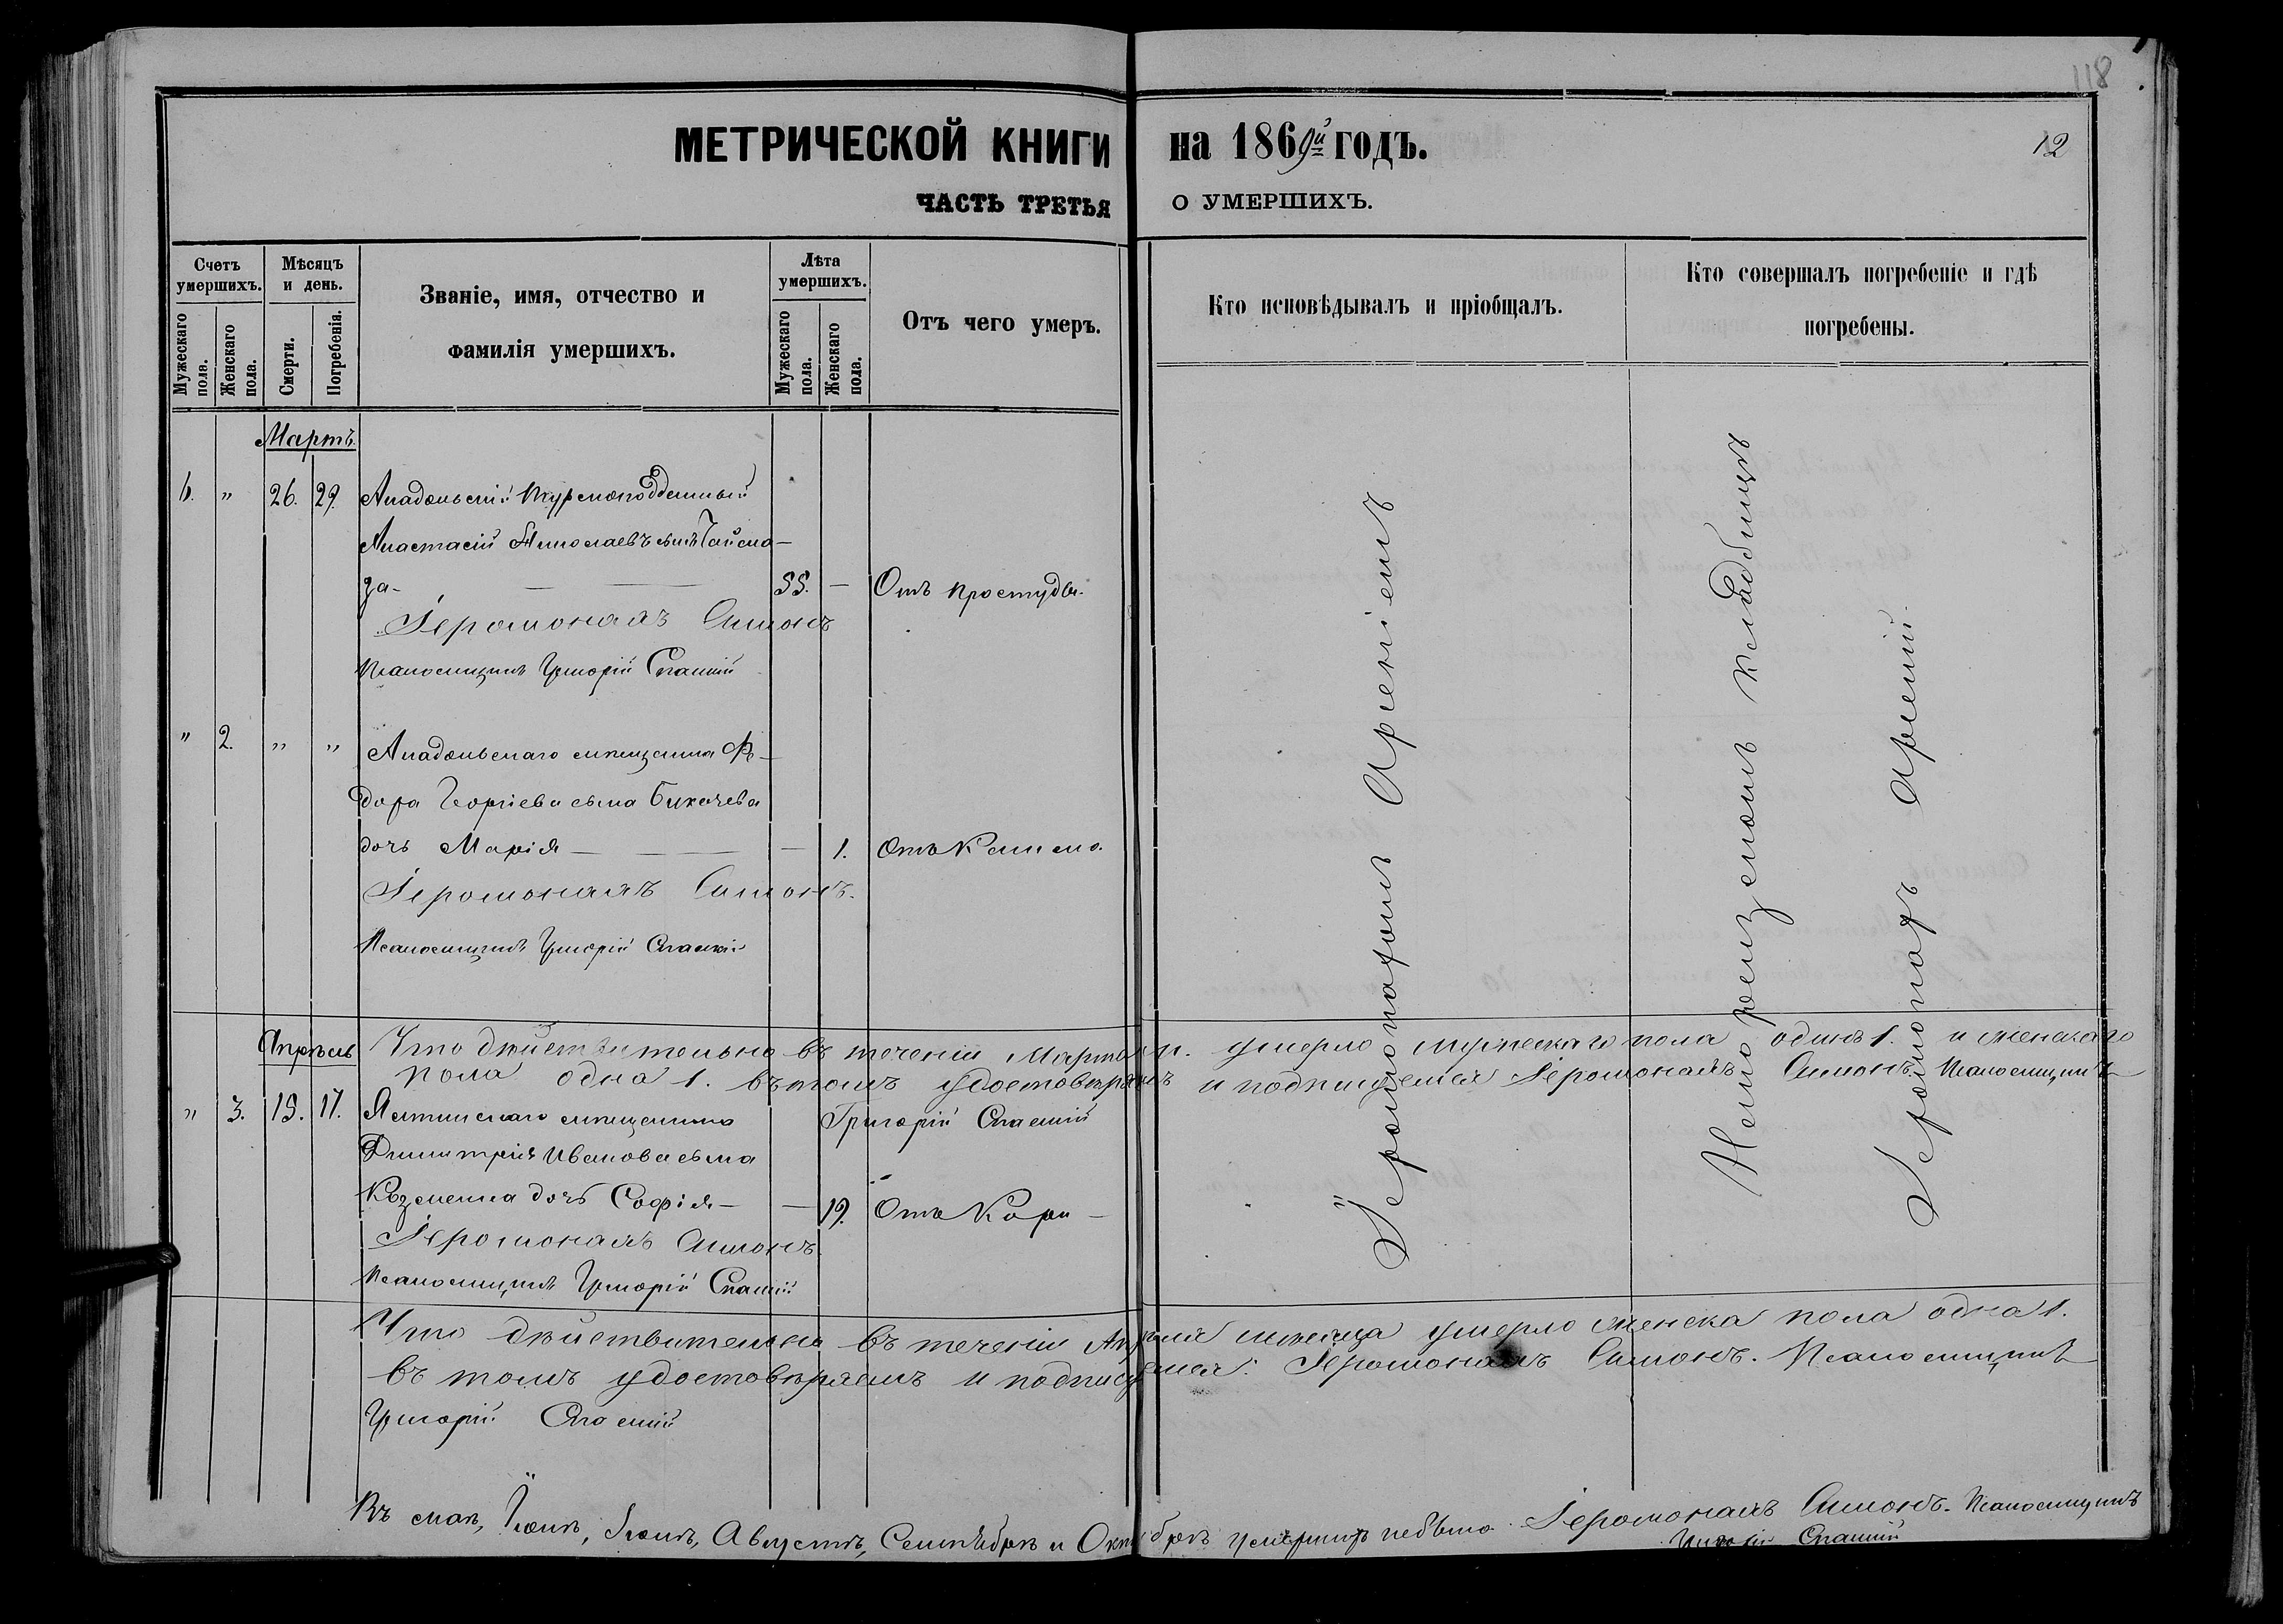 118
МЕТРИЧЕСКОЙ КНИГИ на 1869й годъ.
12
ЧАСТЬ ТРЕТЬЯ О УМЕРШИХЪ.
Счетъ умершихъ.
Мужескаго пола.
Женскаго пола.
Мѣсяцъ и день.
Смерти.
Погребенія.
Званіе, имя, отчество и
фамилія умершихъ.
Лѣта умершихъ.
Мужескаго пола.
Женскаго пола.
Отъ чего умеръ.
Кто исповѣдывалъ и пріобщалъ.
Кто совершалъ погребеніе и гдѣ
погребены.
Мартъ.
6. " 26. 29. Анадольскій
Анастасій сынъ
за — 55. — Отъ простуды.
Іеромонахъ Симонъ
Псаломщикъ Григорій Спаскій
" 2. " " Анадольскаго мѣщанина Фе-
дора Георгіева сына
дочь Марія — — 1. Отъ Кашля.
Іеромонахъ Симонъ.
Псаломщикъ Григорій Спаскій
Апрѣль
Что дѣйствительно въ теченіи Марта м. умерло мужескаго пола одинъ 1. и женскаго
пола одна 1. въ томъ удостовѣряемъ и подписуемся Іеромонахъ Симонъ. Псаломщикъ
Григорій Спаскій
" 3. 15. 17. Ялтинскаго мѣщанина
Димитрія Иванова сына
дочь Софія — — 19. Отъ Кори —
Іеромонахъ Симонъ.
Псаломщикъ Григорій Спаскій
Что дѣйствительно въ теченіи Апреля мѣсяца умерло женска пола одна 1.
въ томъ удостовѣряемъ и подписуемся: Іеромонахъ Симонъ. Псаломщикъ
Григорій Спаскій
Въ маѣ, Іюнѣ, Іюлѣ, Августѣ, Сентябрѣ и Октябрѣ умершихъ небыло. Іеромонахъ Симонъ. Псаломщикъ
Григорій Спаскій
Іеромонахомъ Арсеніемъ
кладбищѣ
Іеромонахъ Арсеній.